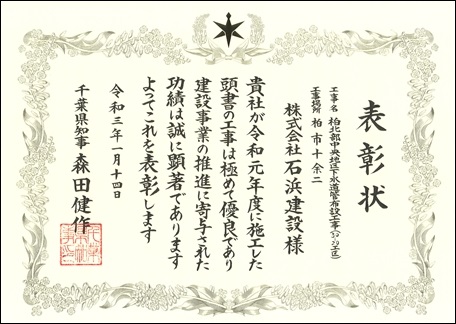 表彰状
工事名 柏北部中央地区下水道管布設工事
工事場所 柏市十余二
株式会社石浜建設様
貴社が令和元年度に施工した
頭書の工事は極めて優良であり
建設事業の推進に寄与された
功績は誠に顕著であります
よってこれを表彰します
令和三年一月十四日
千葉県知事 森田健作